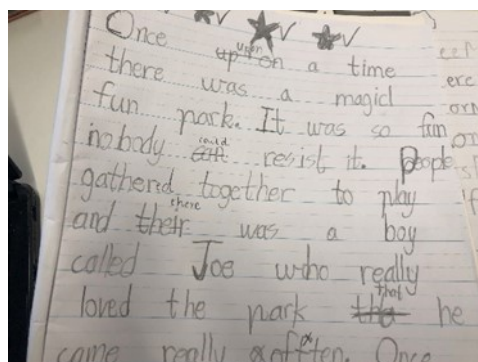 Once upon a time
there was a magicl
fun park. It was so fun
nobody could resist it. People
gathered together to play
and there was a boy
called Joe who really
loved the park that he
came really often. Once